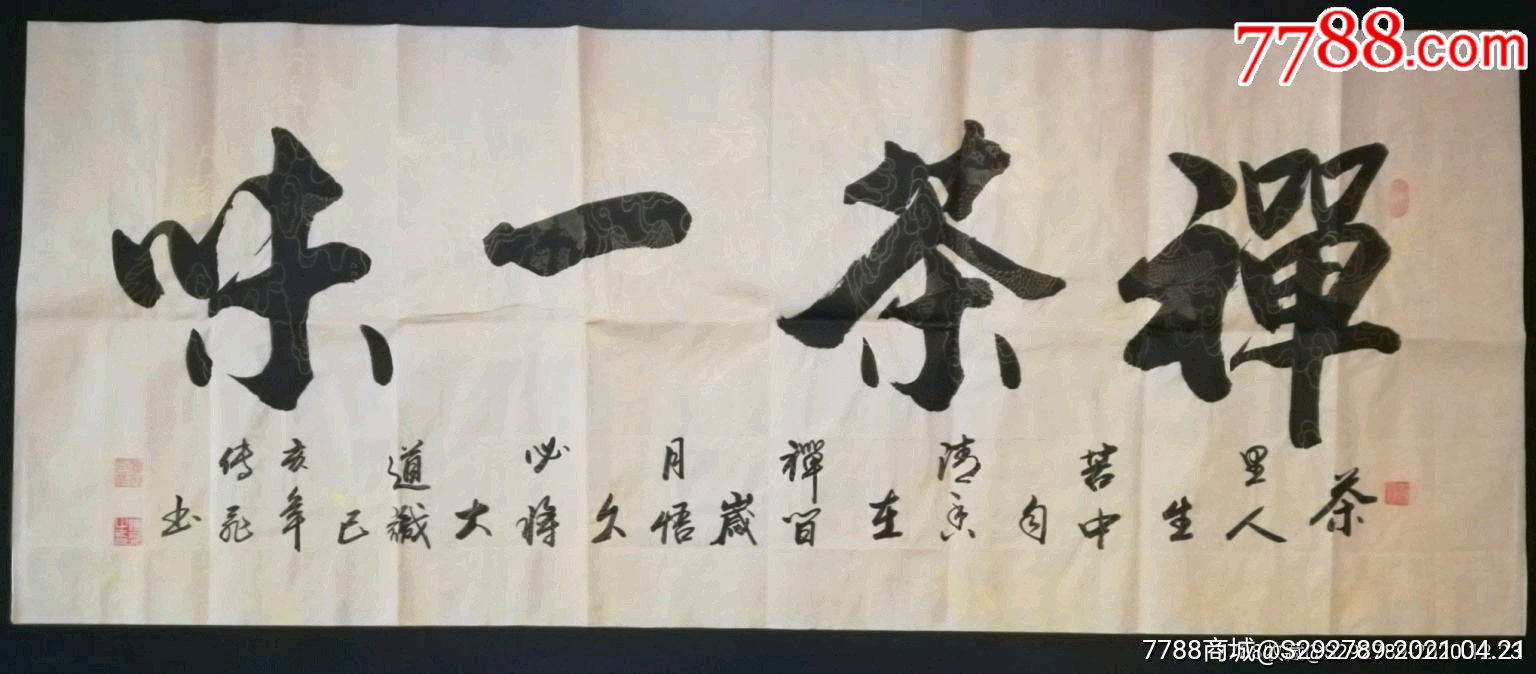 7788.com
禪茶一味
茶里人生苦中自清香在禪间歲月悟久必將大道藏
己亥年
传飛书
7788商城@S292789 2021.04.21